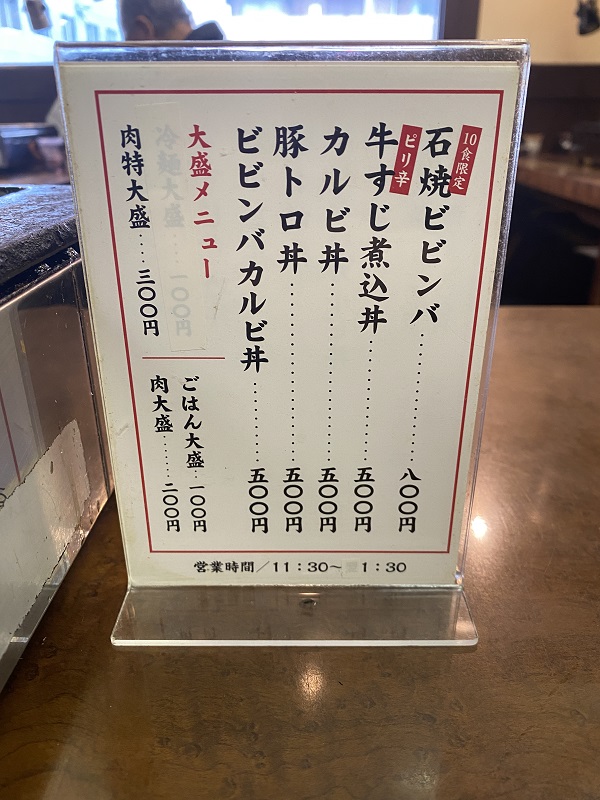 10食限定
石焼ビビンバ…………八〇〇円
ピリ辛
牛すじ煮込丼…………五〇〇円
カルビ丼…………五〇〇円
豚トロ丼…………五〇〇円
ビビンバカルビ丼………五〇〇円
大盛メニュー
冷麺大盛…一〇〇円
肉特大盛….三〇〇円
ごはん大盛…一〇〇円
肉大盛……二〇〇円
営業時間／11：30〜1：30